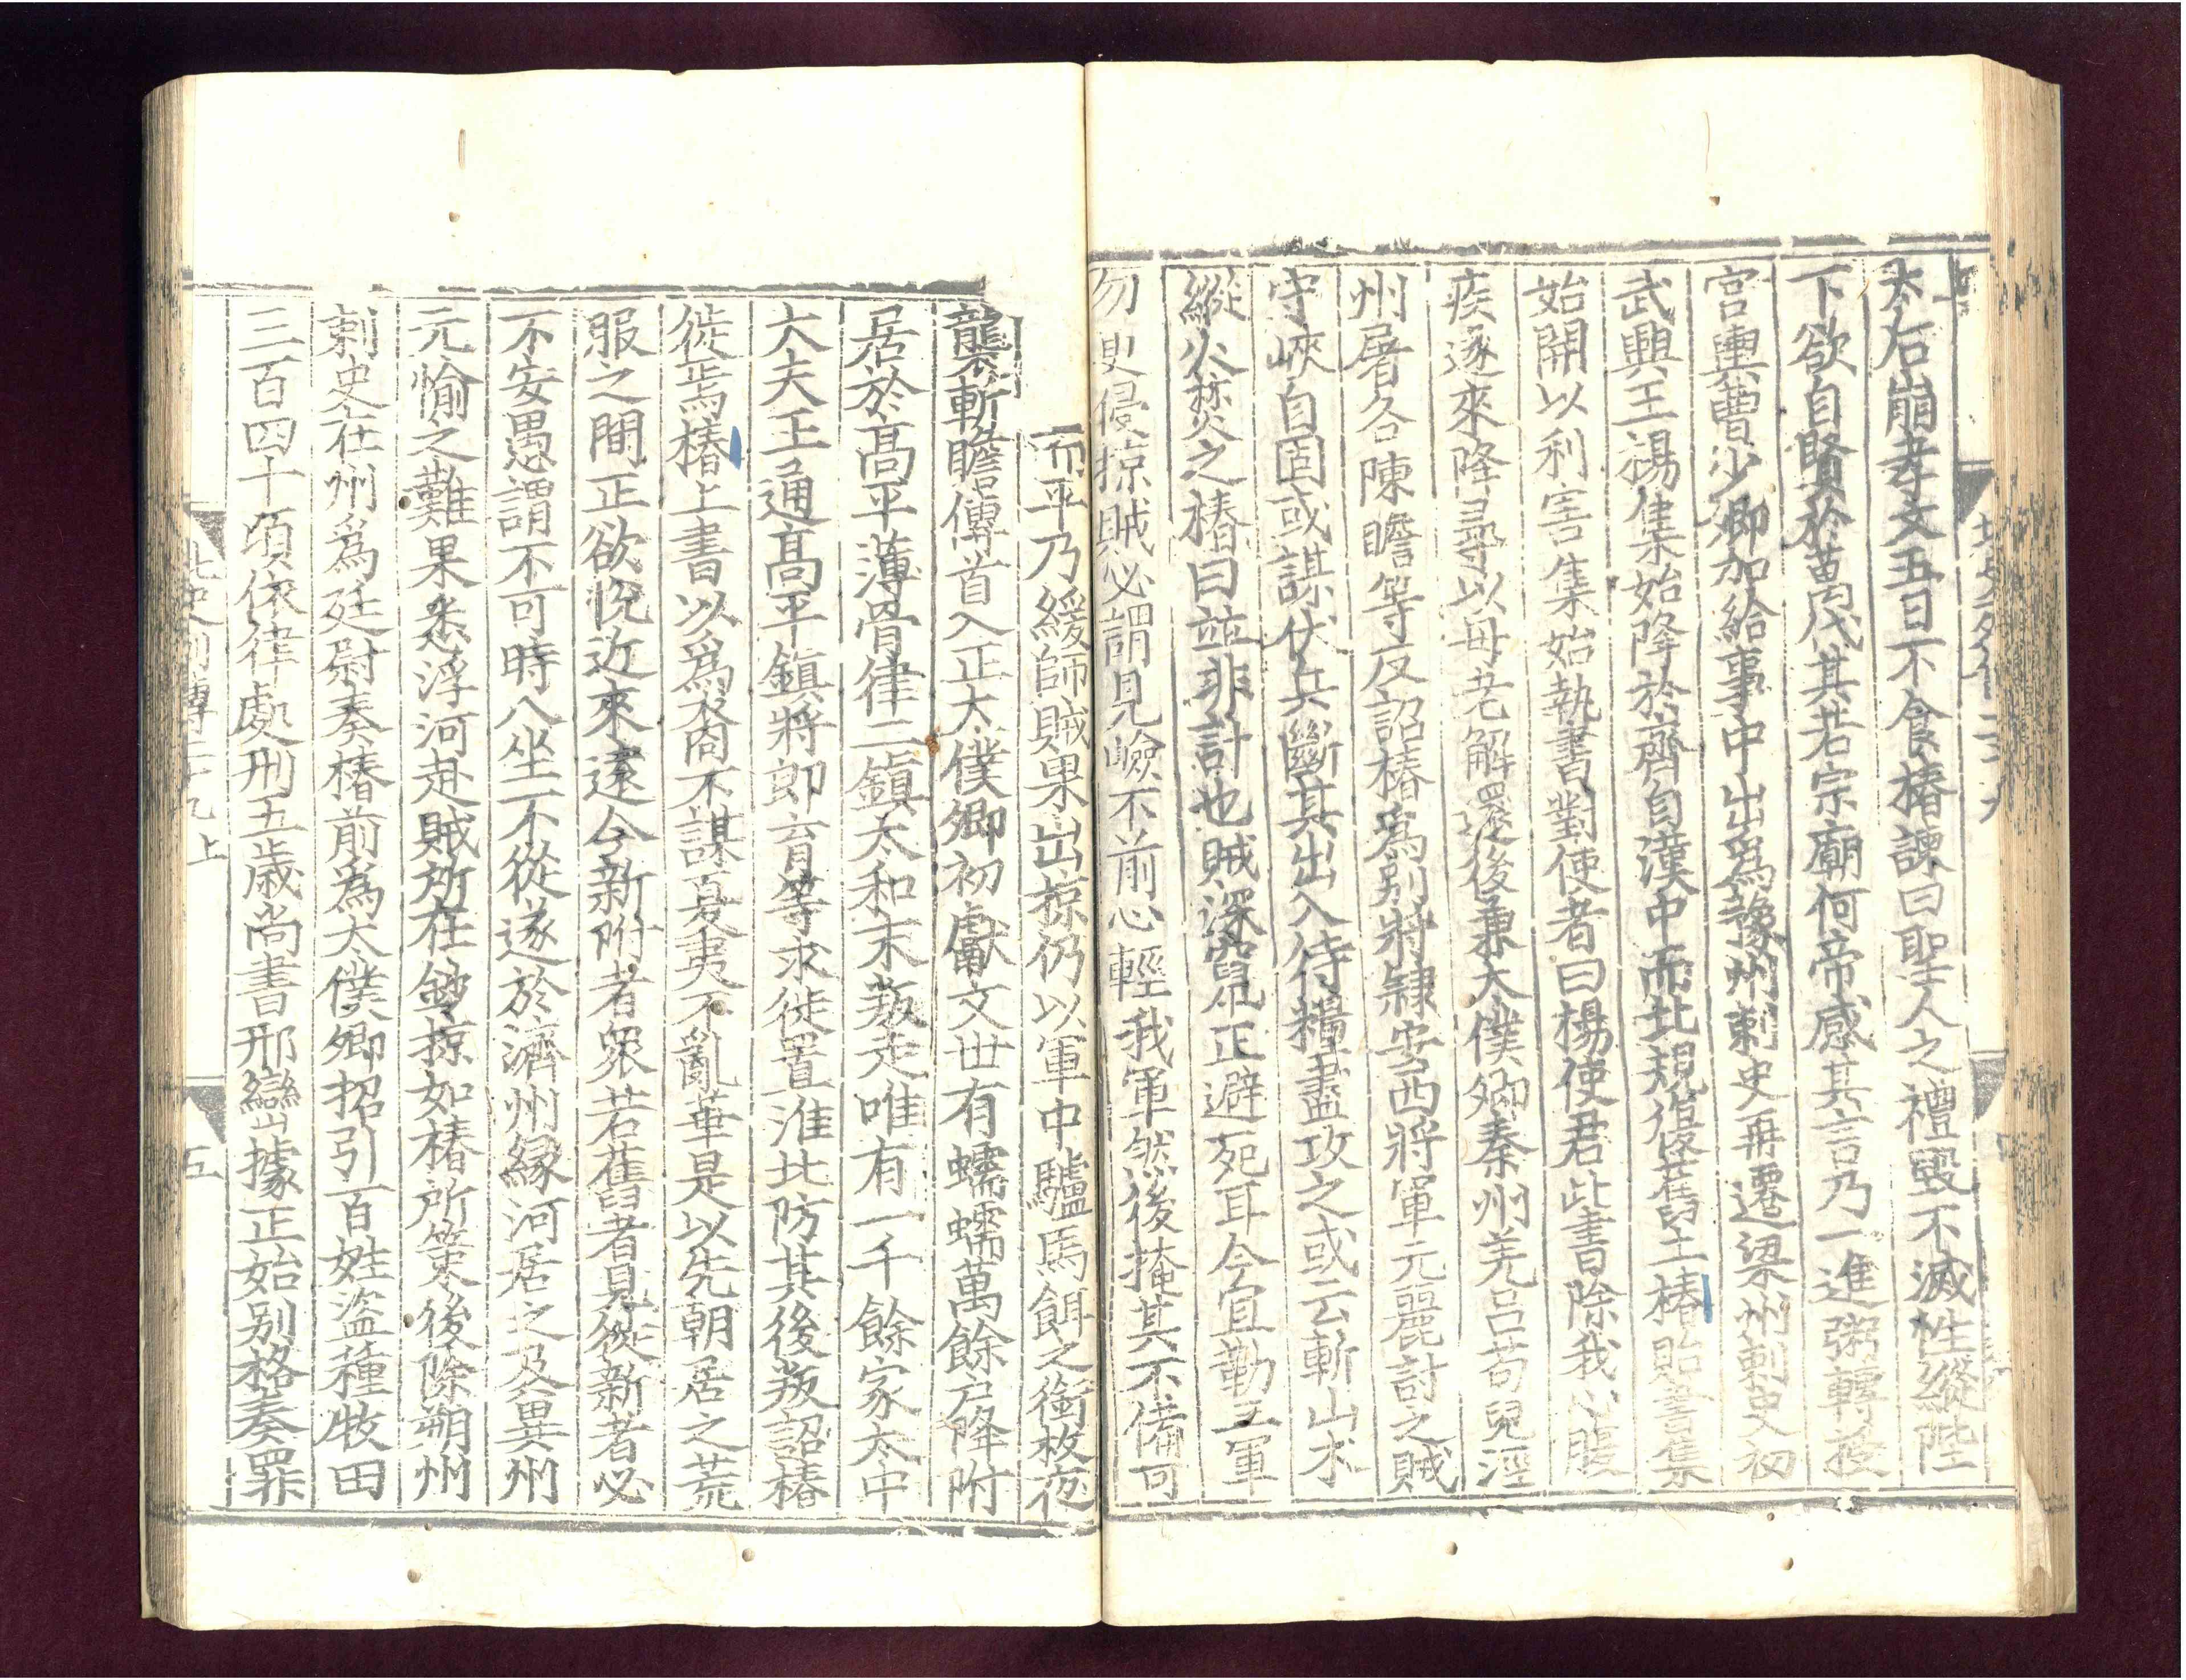 太后崩孝文五日不食椿諫曰聖人之禮毀不滅性縱陛
下欲自賢於萬代其若宗廟何帝感其言乃一進粥轉授
宫輿曹少卿加給事中出爲豫州刺史再遷梁州刺史初
武興王楊集始降於齊自漢中而北規復舊土椿貽書集
始開以利害集始執書對使者曰楊使君此書除我心腹
疾遂來降尋以母老解還後兼太僕卿秦州羌吕苟兒涇
州屠各陳瞻等反詔椿爲别將隷安西將軍元麗討之賊
守峽自固或謀伏兵斷其出入待糧盡攻之或云斬山木
縱火焚之椿曰並非計也賊深竄正避死耳今宜勒三軍
勿更侵掠賊必謂見嶮不前心輕我軍然後掩其不備可
一而平乃緩師賊果出掠仍以軍中驢馬餌之銜枚夜
襲斬瞻傳首入正太僕卿初獻文世有蠕蠕萬餘户降附
居於髙平薄骨律二鎮太和末叛走唯有一千餘家太中
大夫王通髙平鎮將郎育等求徙置淮北防其後叛詔椿
徙焉椿上書以爲裔不謀夏夷不亂華是以先朝居之荒
服之間正欲恱近來遠今新附者衆若舊者見徙新者必
不安愚謂不可時八坐不從遂於濟州縁河居之及異州
元愉之難果悉浮河赴賊所在鈔掠如椿所策後除朔州
刺史在州爲廷尉奏椿前爲太僕卿招引百姓盗種牧田
三百四十頃依律處刑五歳尚書邢巒據正始别格奏罪
北史列傳二十九上
五